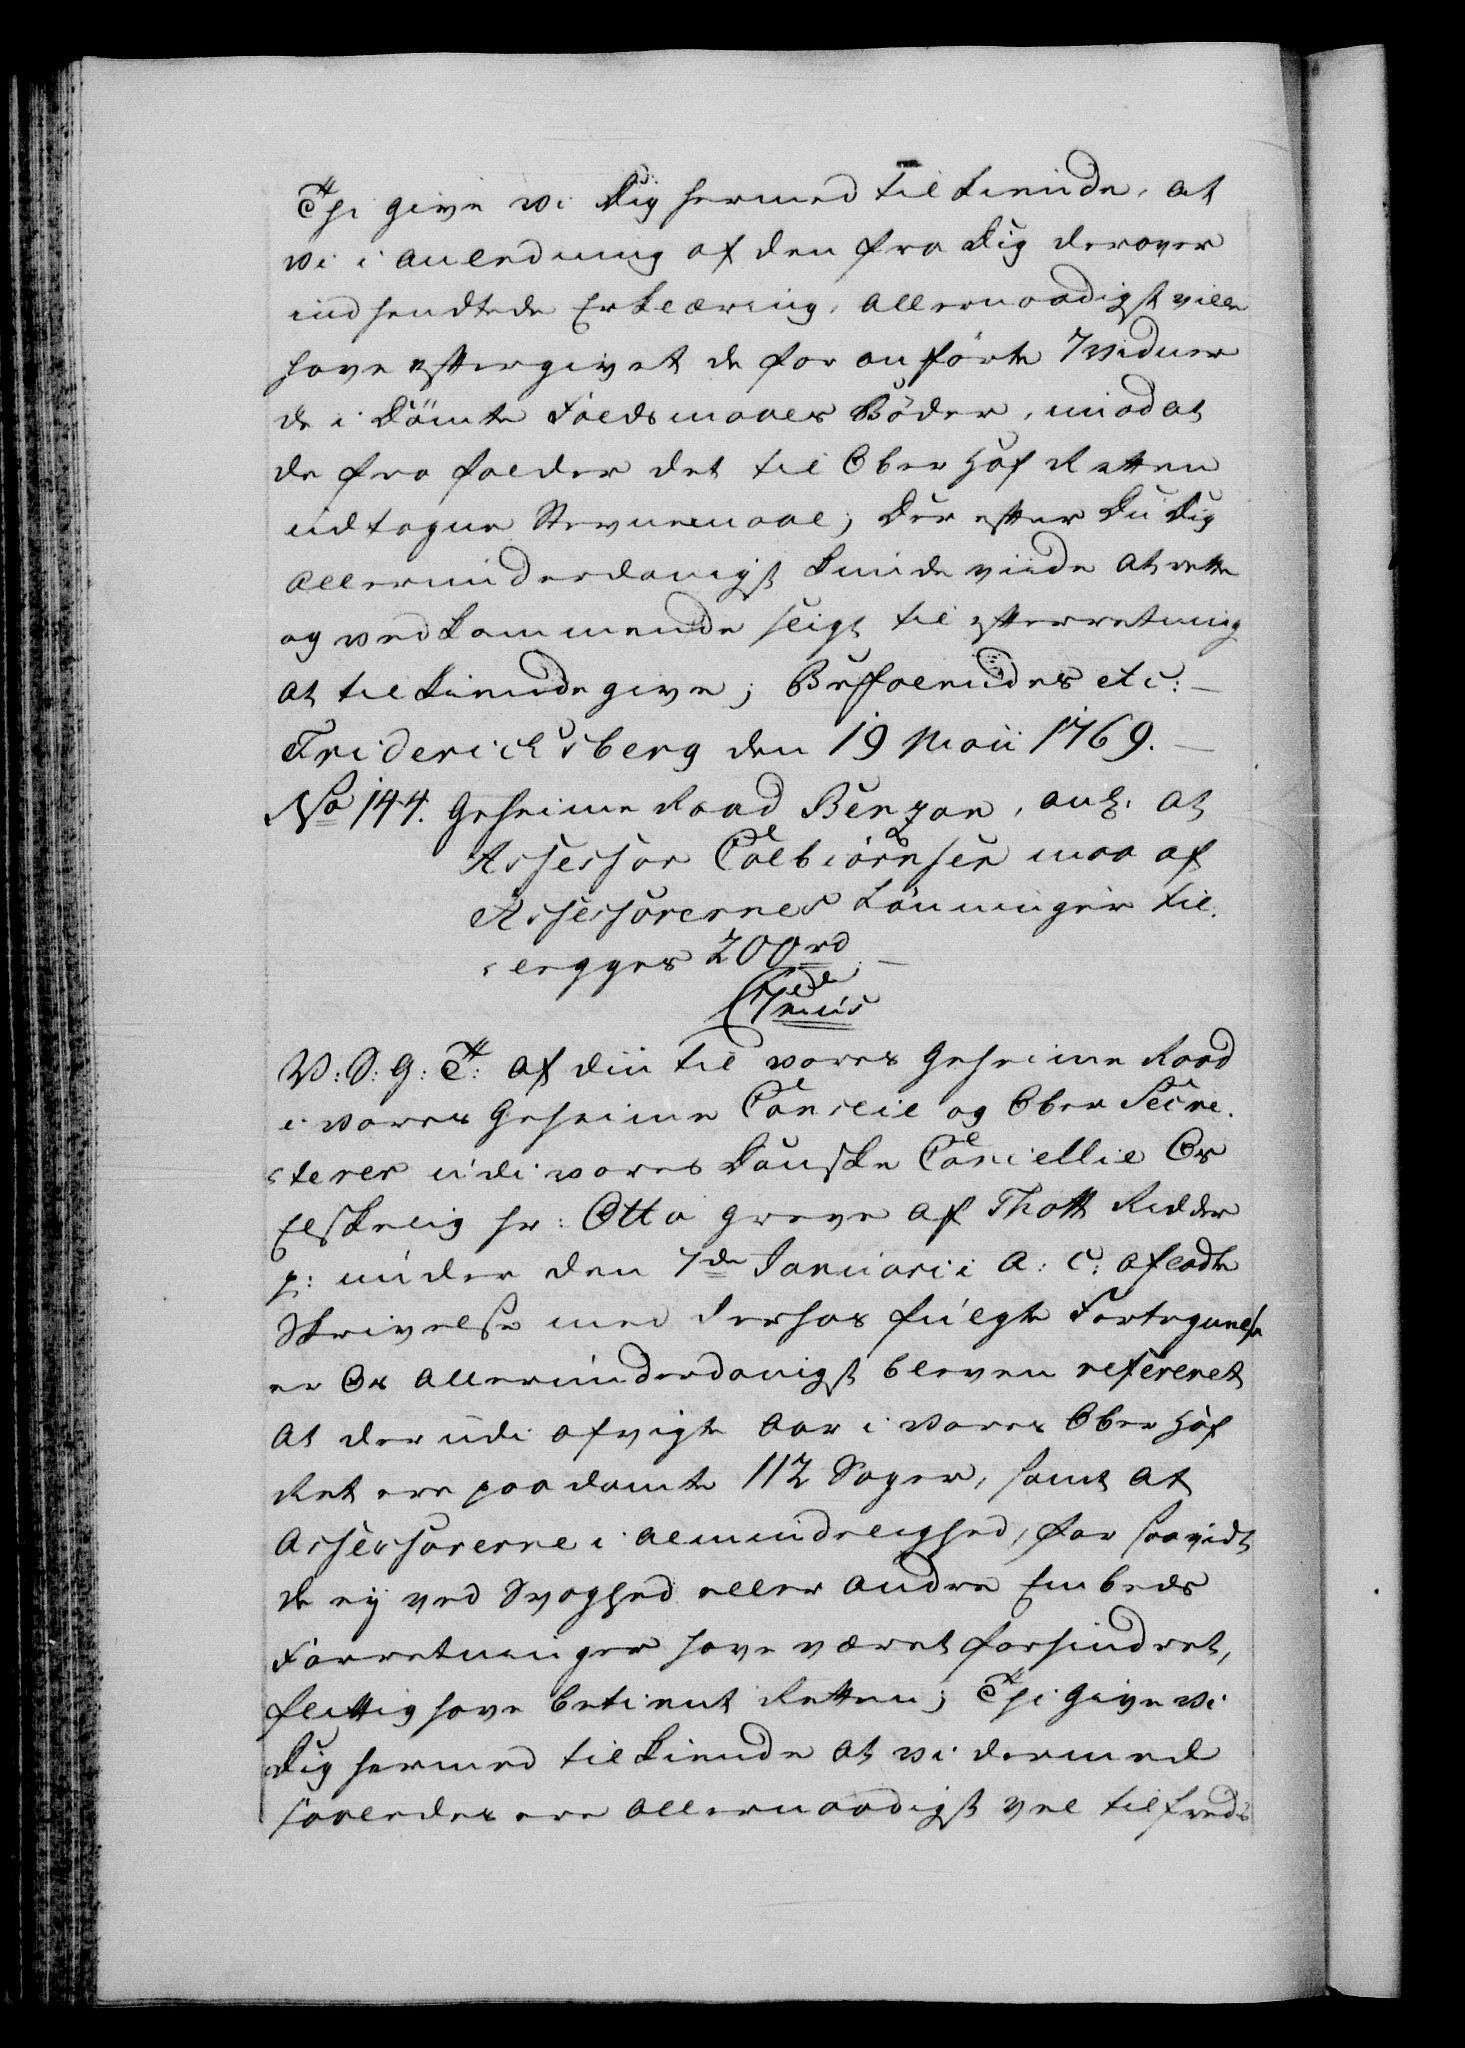 Thi give vi Dig hermed tilkiende, at
vi i anledning af den fra Dig derover
indsendtede Erklæring, allernaadigst ville
have eftergivet de for anførte 7 Vidner
de i Dömte Faldsmaals Böder, imod at
de fra falder det til OberHof Retten
udtagne Stevnemaal; Der efter Du Dig
allerunderdanigst kunde viide at rette
og vedkommende sligt til efterretning
at tilkiendegive; Beffalendes etc: –
Friderichsberg den 19 Maii 1769. –
No 144. Geheime Raad Benzon, anl. at
Assessor Colbiörnsen maa af
Assessorernes Lönninger til-
legges 200 rd. –
C 7mus
V: S: G: T: af din til vores Geheime Raad
i vores Geheime Conseil og Ober Secre-
terer udi vores Danske Cancellie Os
Elskelig Hr: Otto Greve af Thott Ridder
p: under den 7de Januarii A: C: afladte
Skrivelse med derhos fulgte Fortegnelse
er Os allerunderdanigst bleven refereret
at der udi afvigte Aar i Vores Ober Hof
Ret ere paadømte 112 Sager, samt at
Assessorerne i almindelighed, for saavidt
de ey ved Svaghed eller andre Embeds
Forretninger have været forhindret,
flittig have betient Retten; Thi give vi
Dig hermed tilkiende at vi dermed
saaledes ere allernaadigst vel tilfreds